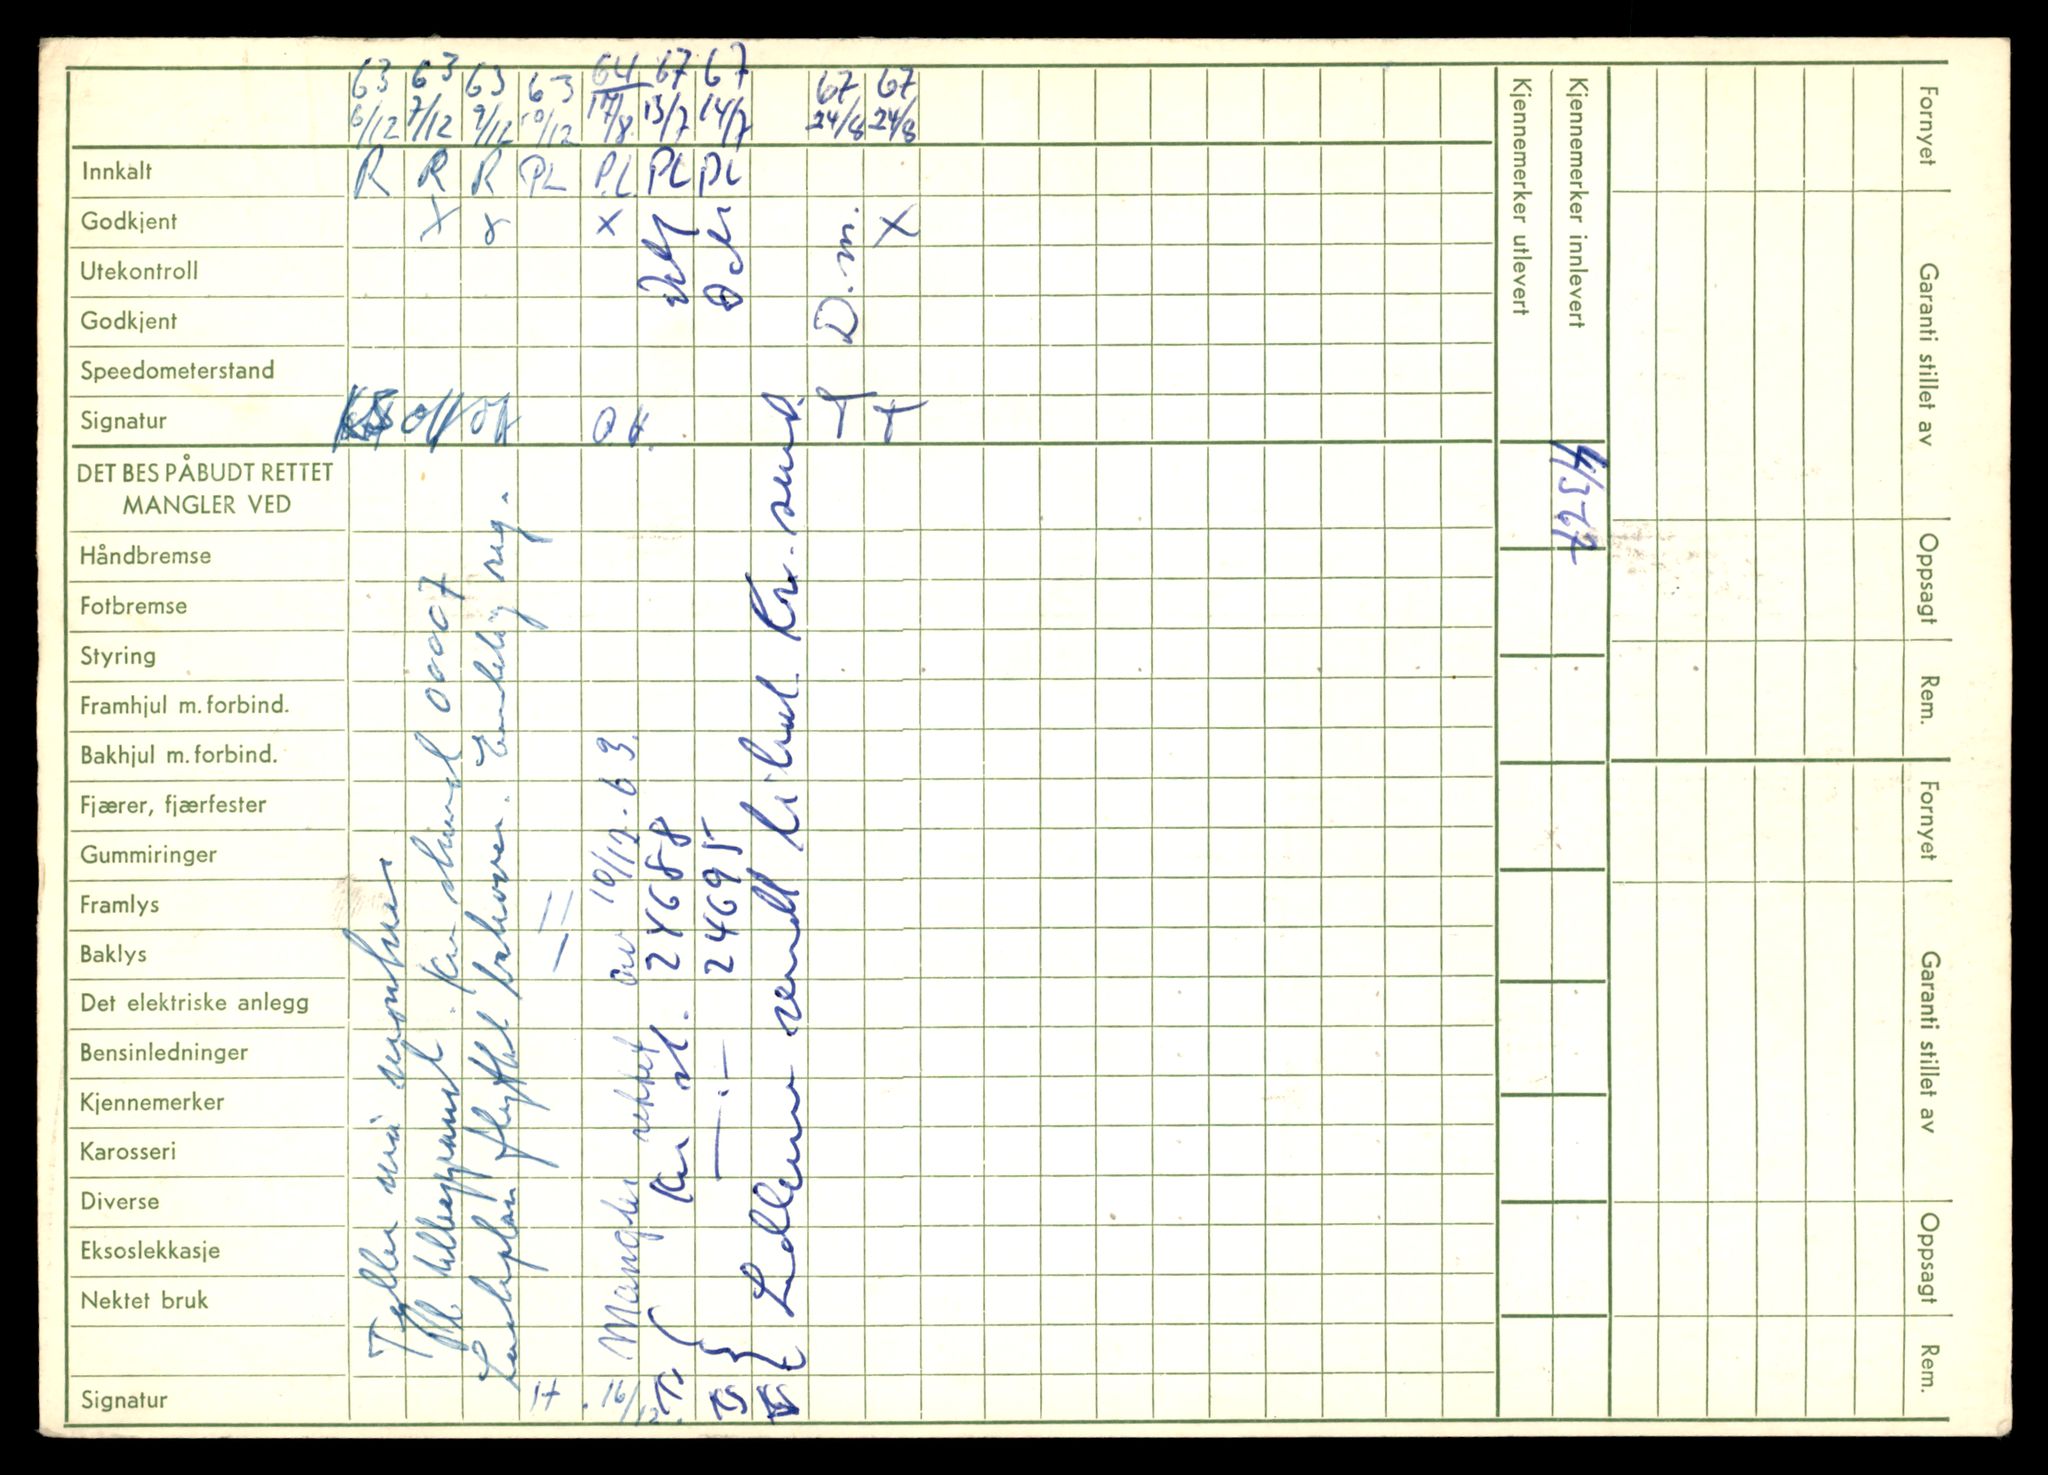 63 63 63 63 64 67 67 67 67
6/12 7/12 9/12 10/12 17/8 13/7 14/7 24/8 24/8
Innkalt R R R PL PL PL PL
Godkjent X X X X
Utekontroll
D.m.
Godkjent
Speedometerstand
Signatur OH OH OH. T T
DET BES PÅBUDT RETTET
MANGLER VED
Håndbremse
Fotbremse
Styring
Framhjul m. forbind.
Bakhjul m. forbind.
Fjærer, fjærfester
Gummiringer
Framlys
Baklys
Det elektriske anlegg
Bensinledninger
Kjennemerker
Karosseri
Diverse
Eksoslekkasje
Nektet bruk
Signatur H 16/12 TS
00007
flyttet bakover. Endelig reg.
— 11 —
Mangler rettet av 10/12-63.
Km st. 24688
— . — 24695
sendt tilhut. Kr. sund.
Kjennemerker utlevert
Kjennemerker innlevert
4/3-67
Fornyet
Garanti stillet av
Oppsagt
Rem.
Fornyet
Garanti stillet av
Oppsagt
Rem.